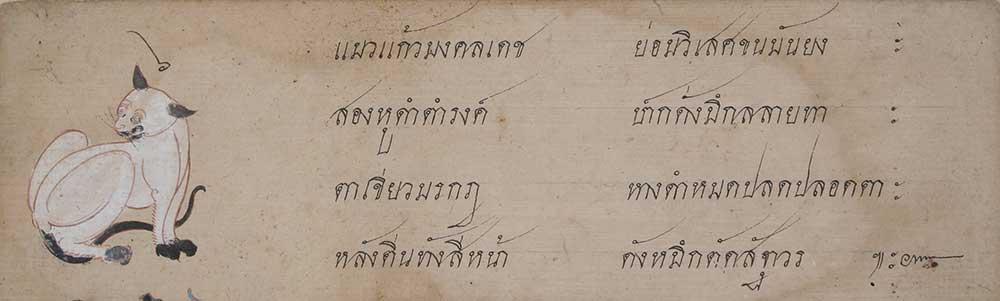 แมวแก้วมงคลเดช ย่อมวิเสศขนมันยง ะ
สองหูดำดำรงค์ ปากดั่งมึกลลายทา ะ
ตาเขียวมรกฏ หางดำหมดปลดปลอดตา ะ
หลังตีนทังสี่หน้า ดังหมึก